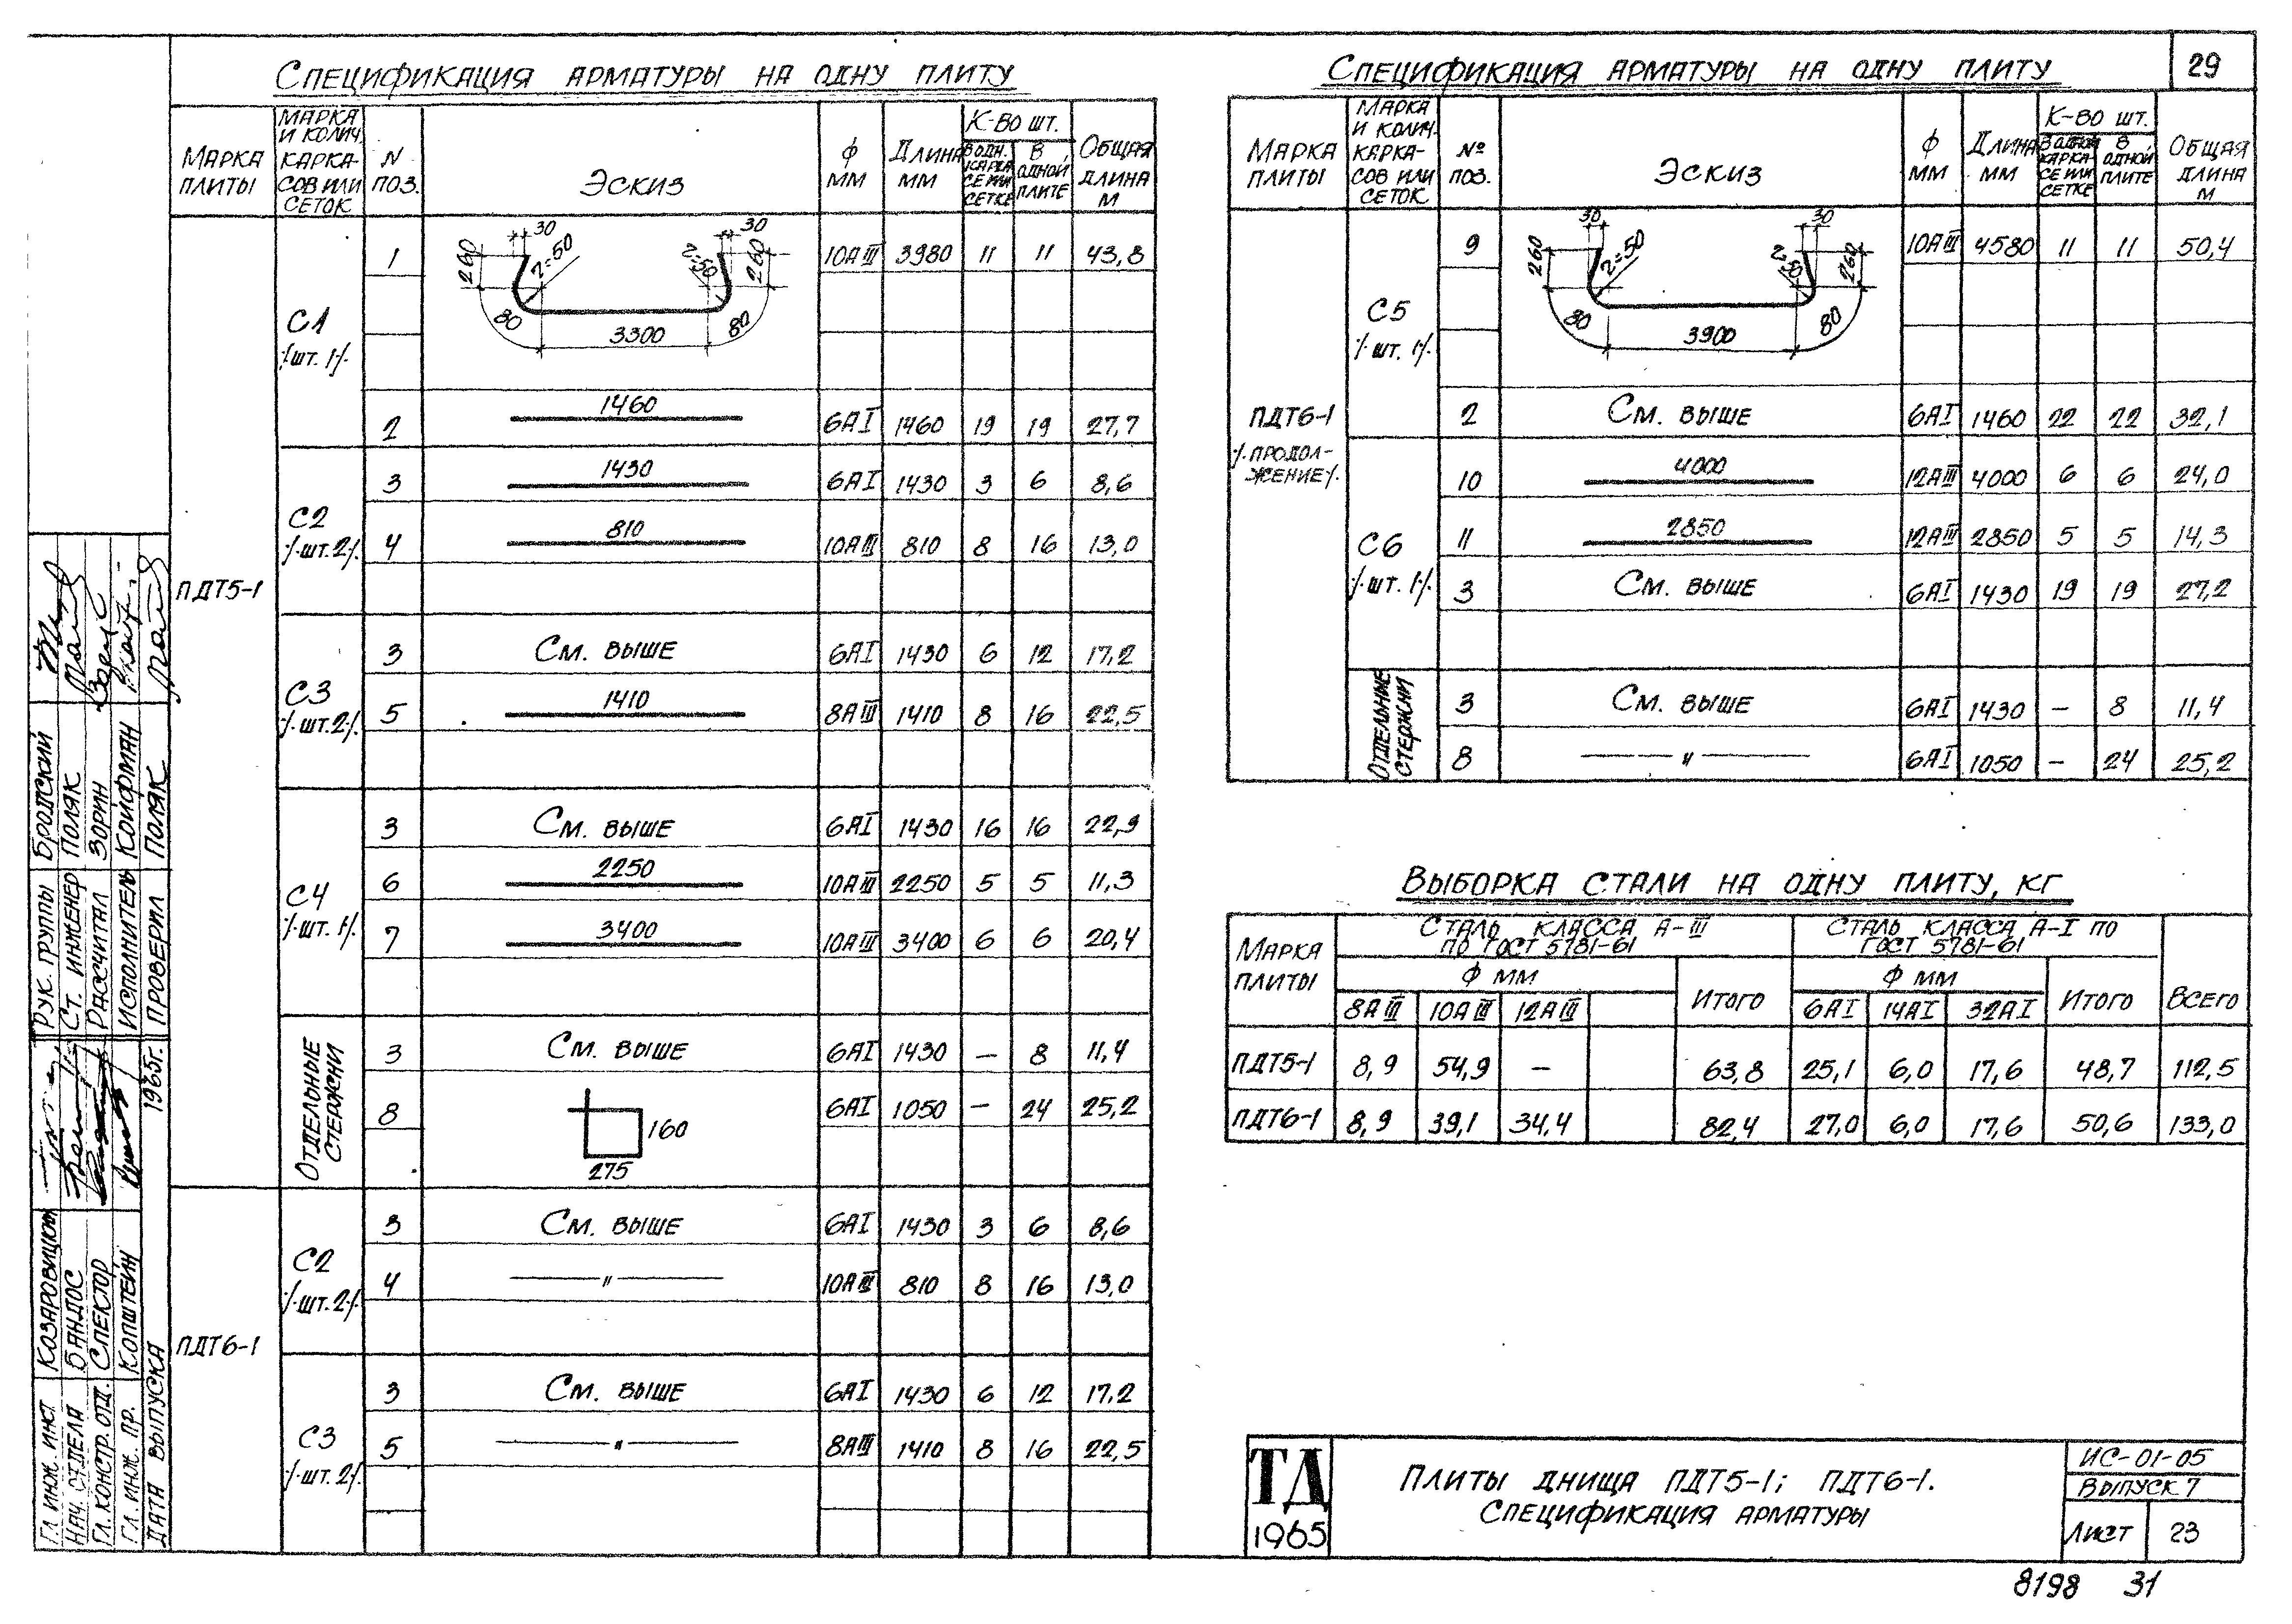 29
Спецификация арматуры на одну плиту
Марка плиты | Марка и колич. каркасов или сеток | N поз. | Эскиз | ф мм | Длина мм | К-во шт. | Общая длина м
В одн. каркасе или сетке | В одной плите
ПДТ5-1
С1 /шт. 1/
1 | 30 260 r=50 80 3300 80 r=50 260 30 | 10АIII | 3980 | 11 | 11 | 43,8
2 | 1460 | 6АI | 1460 | 19 | 19 | 27,7
С2 /шт. 2/
3 | 1430 | 6АI | 1430 | 3 | 6 | 8,6
4 | 810 | 10АIII | 810 | 8 | 16 | 13,0
С3 /шт. 2/
3 | См. выше | 6АI | 1430 | 6 | 12 | 17,2
5 | 1410 | 8АIII | 1410 | 8 | 16 | 22,5
С4 /шт. 1/
3 | См. выше | 6АI | 1430 | 16 | 16 | 22,9
6 | 2250 | 10АIII | 2250 | 5 | 5 | 11,3
7 | 3400 | 10АIII | 3400 | 6 | 6 | 20,4
Отдельные стержни
3 | См. выше | 6АI | 1430 | – | 8 | 11,4
8 | 160 275 | 6АI | 1050 | – | 24 | 25,2
ПДТ6-1
С2 /шт. 2/
3 | См. выше | 6АI | 1430 | 3 | 6 | 8,6
4 | — " — | 10АIII | 810 | 8 | 16 | 13,0
С3 /шт. 2/
3 | См. выше | 6АI | 1430 | 6 | 12 | 17,2
5 | — " — | 8АIII | 1410 | 8 | 16 | 22,5
Спецификация арматуры на одну плиту
Марка плиты | Марка и колич. каркасов или сеток | № поз. | Эскиз | ф мм | Длина мм | К-во шт. | Общая длина м
В одной каркасе или сетке | В одной плите
ПДТ6-1 /продолжение/
С5 /шт. 1/
9 | 30 260 r=50 80 3900 80 r=50 260 30 | 10АIII | 4580 | 11 | 11 | 50,4
2 | См. выше | 6АI | 1460 | 22 | 22 | 32,1
С6 /шт. 1/
10 | 4000 | 12АIII | 4000 | 6 | 6 | 24,0
11 | 2850 | 12АIII | 2850 | 5 | 5 | 14,3
3 | См. выше | 6АI | 1430 | 19 | 19 | 27,2
Отдельные стержни
3 | См. выше | 6АI | 1430 | – | 8 | 11,4
8 | — " — | 6АI | 1050 | – | 24 | 25,2
Выборка стали на одну плиту, кг
Марка плиты | Сталь класса А-III по ГОСТ 5781-61 | Сталь класса А-I по ГОСТ 5781-61 | Всего
ф мм | Итого | ф мм | Итого
8АIII | 10АIII | 12АIII | 6АI | 14АI | 32АI
ПДТ5-1 | 8,9 | 54,9 | – | 63,8 | 25,1 | 6,0 | 17,6 | 48,7 | 112,5
ПДТ6-1 | 8,9 | 39,1 | 34,4 | 82,4 | 27,0 | 6,0 | 17,6 | 50,6 | 133,0
Рук. группы Бродский
Ст. инженер Поляк
Рассчитал Зорин
Исполнитель Койфман
Проверил Поляк
Гл. инж. инст
Нач. отдела Бандос
Гл. констр. отд. Спектор
Гл. инж. пр. Копштейн
Дата выпуска 1965г.
ТД
1965
Плиты днища ПДТ5-1; ПДТ6-1.
Спецификация арматуры
ИС-01-05
Выпуск 7
Лист 23
8198 31